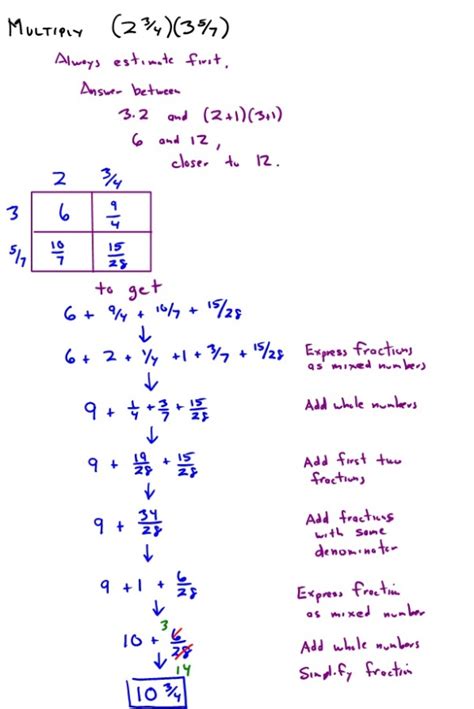 MULTIPLY (2 3/4)(3 5/7)
Always estimate first.
Answer between
3·2 and (2+1)(3+1)
6 and 12,
closer to 12.
2 3/4
3 6 9/4
5/7 10/7 15/28
to get
6 + 9/4 + 10/7 + 15/28
6 + 2 + 1/4 + 1 + 3/7 + 15/28 Express fractions
as mixed numbers
9 + 1/4 + 3/7 + 15/28 Add whole numbers
9 + 19/28 + 15/28 Add first two
fractions
9 + 34/28 Add fractions
with same
denominator
9 + 1 + 6/28 Express fraction
as mixed number
3
10 + 6/28 Add whole numbers
14 Simplify fraction
10 3/4